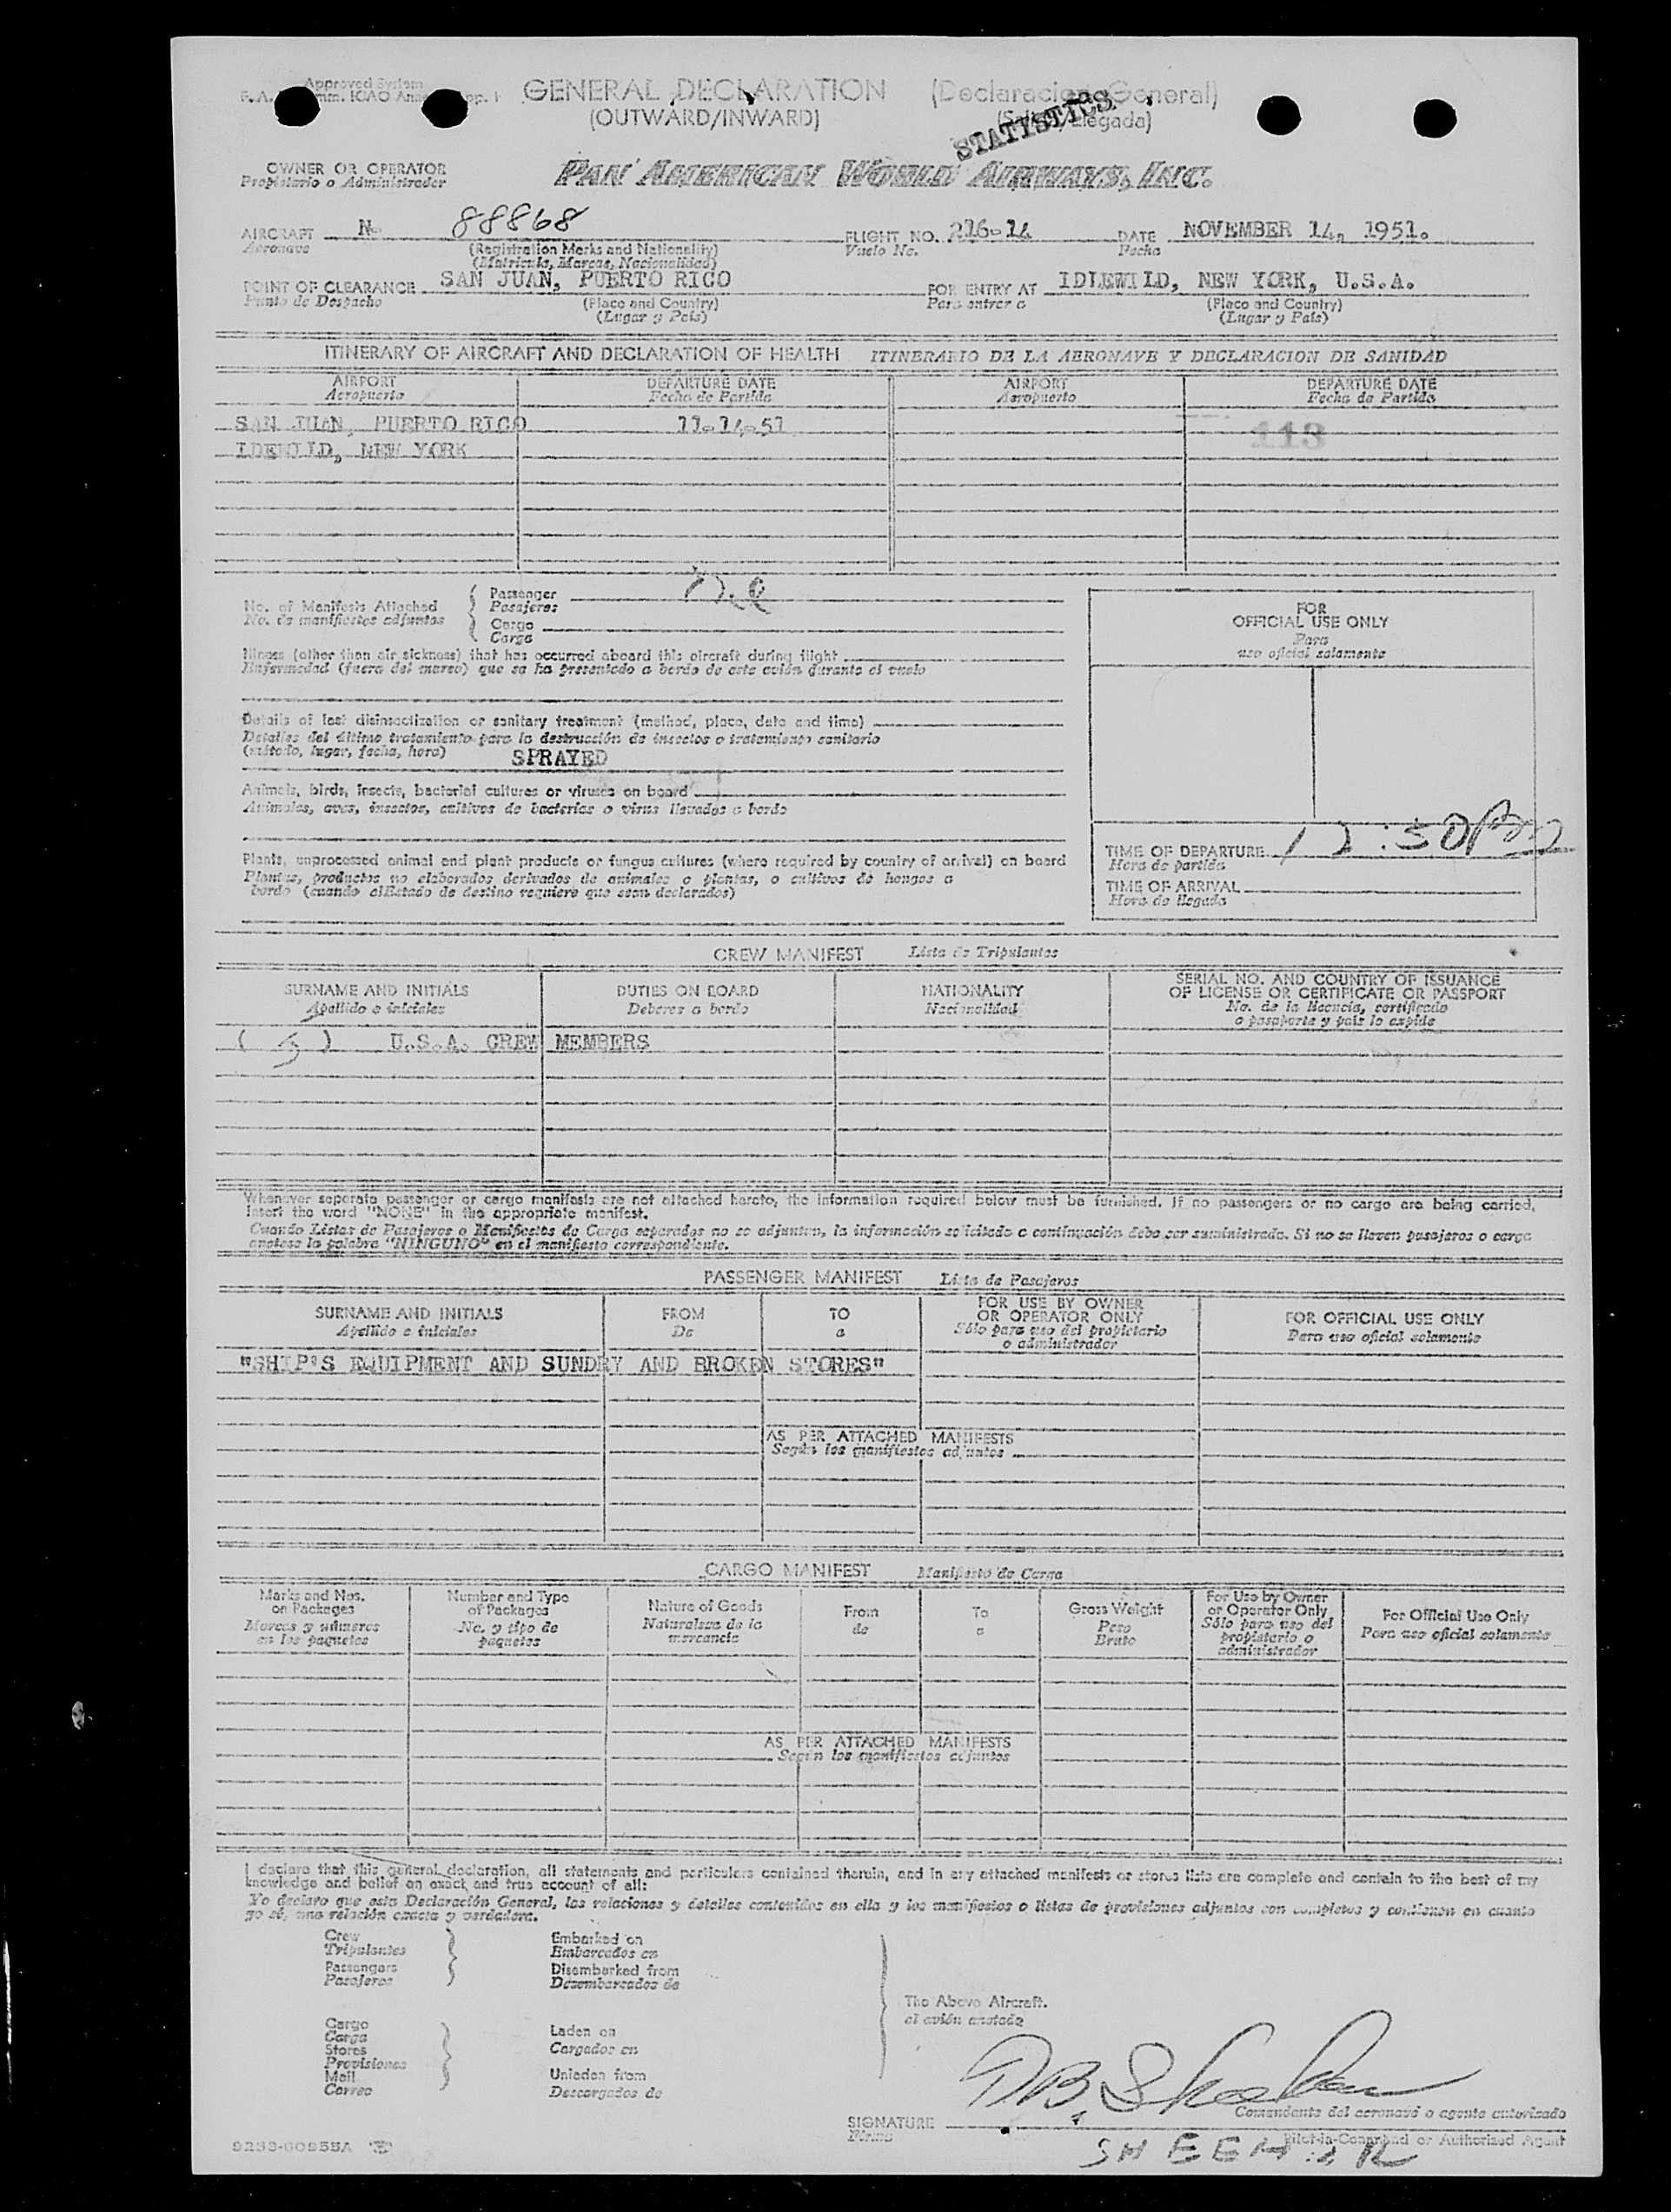 Approved System
GENERAL DECLARATION (Declaracion General)
(OUTWARD/INWARD) Llegada)
STATISTICS
OWNER OR OPERATOR
Propietario o Administrador
PAN AMERICAN WORLD AIRWAYS, INC.
AIRCRAFT N- 88868 FLIGHT NO. 216-14 DATE NOVEMBER 14, 1951.
Aeronave (Registration Marks and Nationality) Vuelo No. Fecha
(Matricula, Marcas, Nacionalidad)
POINT OF CLEARANCE SAN JUAN, PUERTO RICO FOR ENTRY AT IDLEWILD, NEW YORK, U.S.A.
Punto de Despacho (Place and Country) Para entrar a (Place and Country)
(Lugar y País) (Lugar y País)
ITINERARY OF AIRCRAFT AND DECLARATION OF HEALTH ITINERARIO DE LA AERONAVE Y DECLARACION DE SANIDAD
AIRPORT DEPARTURE DATE AIRPORT DEPARTURE DATE
Aeropuerto Fecha de Partida Aeropuerto Fecha de Partida
SAN JUAN, PUERTO RICO 11-14-51 113
IDEWILD, NEW YORK
No. of Manifests Attached Passenger
No. de manifiestos adjuntos Pasajeros
Cargo
Carga
FOR
OFFICIAL USE ONLY
Para
uso oficial solamente
Illness (other than air sickness) that has occurred aboard this aircraft during flight
Enfermedad (fuera del mareo) que se ha presentado a bordo de este avión durante el vuelo
Details of last disinsectization or sanitary treatment (method, place, date and time)
Detalles del último tratamiento para la destrucción de insectos o tratamiento sanitario
(método, lugar, fecha, hora) SPRAYED
Animals, birds, insects, bacterial cultures or viruses on board
Animales, aves, insectos, cultivos de bacterias o virus llevados a bordo
Plants, unprocessed animal and plant products or fungus cultures (where required by country of arrival) on board
Plantas, productos no elaborados derivados de animales o plantas, o cultivos de hongos a
bordo (cuando el Estado de destino requiere que sean declarados)
TIME OF DEPARTURE 12:50
Hora de partida
TIME OF ARRIVAL
Hora de llegada
CREW MANIFEST Lista de Tripulantes
SURNAME AND INITIALS DUTIES ON BOARD NATIONALITY SERIAL NO. AND COUNTRY OF ISSUANCE
OF LICENSE OR CERTIFICATE OR PASSPORT
Apellido e iniciales Deberes a bordo Nacionalidad No. de la licencia, certificado
o pasaporte y país lo expide
( 5 ) U.S.A. CREW MEMBERS
Whenever separate passenger or cargo manifests are not attached hereto, the information required below must be furnished. If no passengers or no cargo are being carried,
insert the word "NONE" in the appropriate manifest.
Cuando Listas de Pasajeros o Manifiestos de Carga separados no se adjunten, la información solicitada a continuación debe ser suministrada. Si no se llevan pasajeros o carga
anotese la palabra "NINGUNO" en el manifiesto correspondiente.
PASSENGER MANIFEST Lista de Pasajeros
SURNAME AND INITIALS FROM TO FOR USE BY OWNER
OR OPERATOR ONLY FOR OFFICIAL USE ONLY
Apellido e iniciales De a Sólo para uso del propietario
o administrador Para uso oficial solamente
"SHIP'S EQUIPMENT AND SUNDRY AND BROKEN STORES"
AS PER ATTACHED MANIFESTS
Según los manifiestos adjuntos
CARGO MANIFEST Manifiesto de Carga
Marks and Nos.
on Packages
Marcas y números
en los paquetes
Number and Type
of Packages
No. y tipo de
paquetes
Nature of Goods
Naturaleza de la
mercancia
From
de
To
a
Gross Weight
Peso
Bruto
For Use by Owner
or Operator Only
Sólo para uso del
propietario o
administrador
For Official Use Only
Para uso oficial solamente
AS PER ATTACHED MANIFESTS
Según los manifiestos adjuntos
I declare that this general declaration, all statements and particulars contained therein, and in any attached manifests or stores lists are complete and contain to the best of my
knowledge and belief an exact and true account of all:
Yo declaro que esta Declaración General, las relaciones y detalles contenidos en ella y los manifiestos o listas de provisiones adjuntos son completos y contienen en cuanto
yo sé, una relación exacta y verdadera.
Crew Embarked on
Tripulantes Embarcados en
Passengers Disembarked from
Pasajeros Desembarcados de
The Above Aircraft.
al avión anotado
Cargo
Carga Laden on
Stores Cargados en
Provisiones
Mail Unladen from
Correo Descargados de
SIGNATURE Comandante del aeronave o agente autorizado
Firma Pilot-in-Command or Authorized Agent
9253-60955A